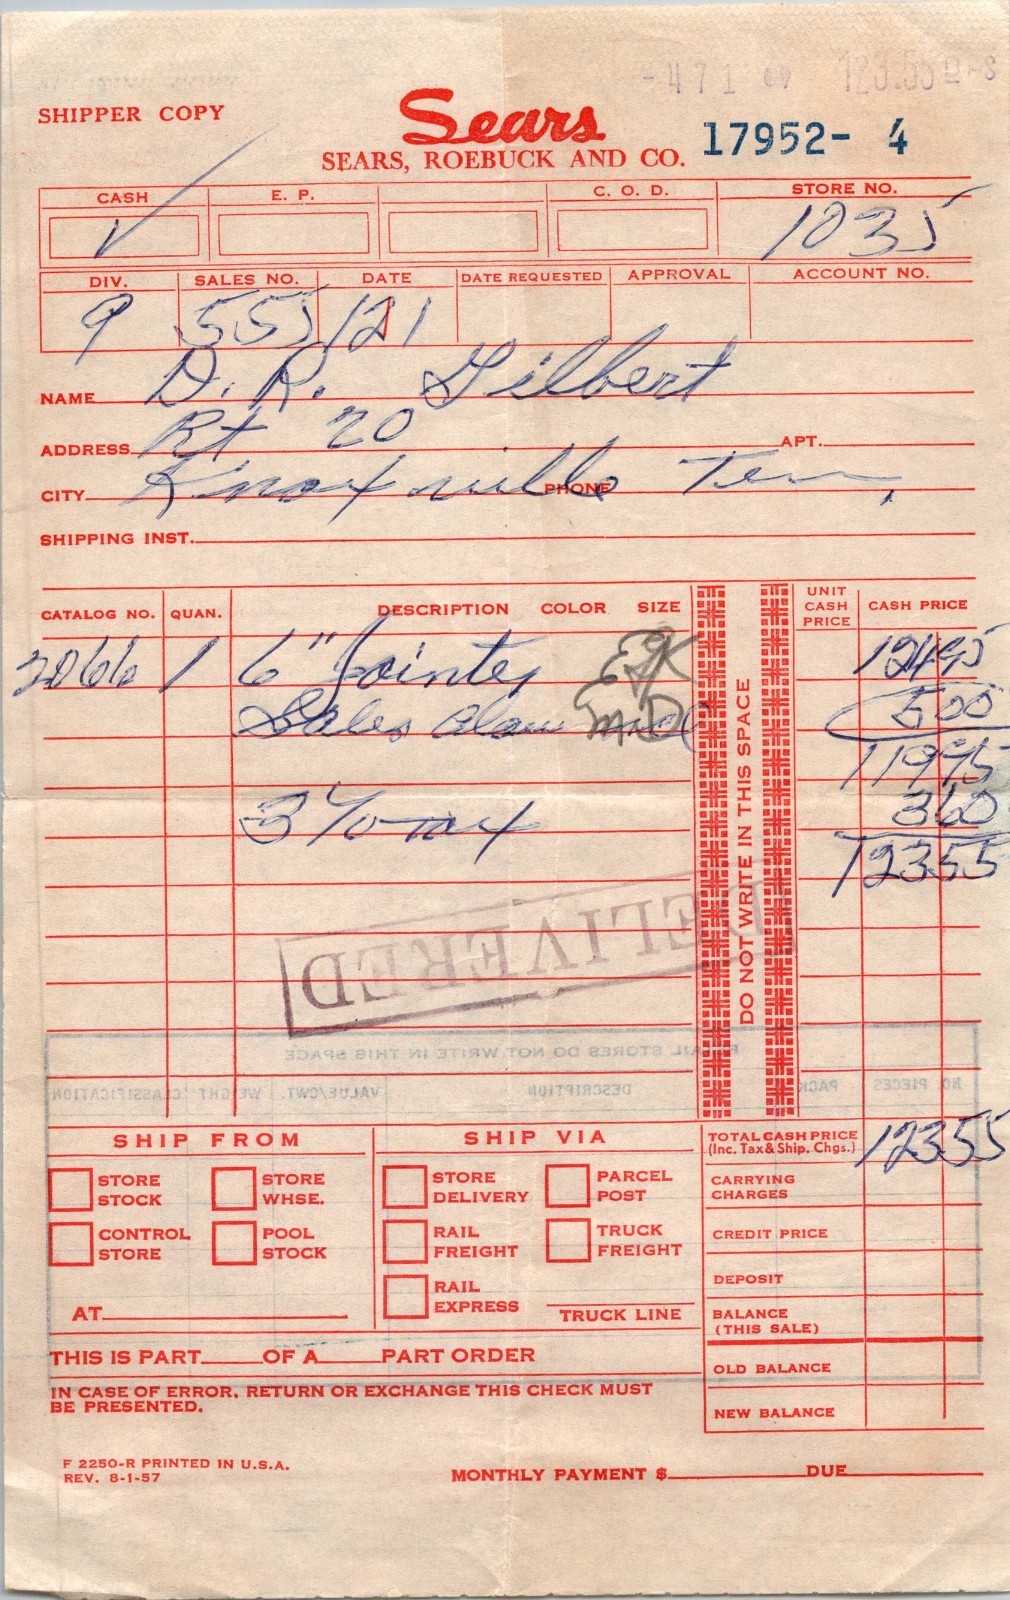 123.55
SHIPPER COPY
Sears
SEARS, ROEBUCK AND CO.
17952- 4
CASH E. P. C. O. D. STORE NO.
✓ 1035
DIV. SALES NO. DATE DATE REQUESTED APPROVAL ACCOUNT NO.
9 555 121
NAME D. R. Gilbert
ADDRESS Rt 20 APT.
CITY Knoxville PHONE Tenn,
SHIPPING INST.
CATALOG NO. QUAN. DESCRIPTION COLOR SIZE UNIT CASH PRICE CASH PRICE
DO NOT WRITE IN THIS SPACE
2066 1 6" Jointer 12495
Sales 500
11995
3% tax 360
12355
DELIVERED
RETAIL STORES DO NOT WRITE IN THIS SPACE
NO. PIECES DESCRIPTION VALUE/CWT. WEIGHT CLASSIFICATION
SHIP FROM SHIP VIA TOTAL CASH PRICE 12355
(Inc. Tax & Ship. Chgs.)
STORE STOCK STORE WHSE. STORE DELIVERY PARCEL POST CARRYING CHARGES
CONTROL STORE POOL STOCK RAIL FREIGHT TRUCK FREIGHT CREDIT PRICE
RAIL EXPRESS DEPOSIT
AT TRUCK LINE BALANCE (THIS SALE)
THIS IS PART OF A PART ORDER OLD BALANCE
IN CASE OF ERROR, RETURN OR EXCHANGE THIS CHECK MUST
BE PRESENTED. NEW BALANCE
F 2250-R PRINTED IN U.S.A.
REV. 8-1-57
MONTHLY PAYMENT $ DUE